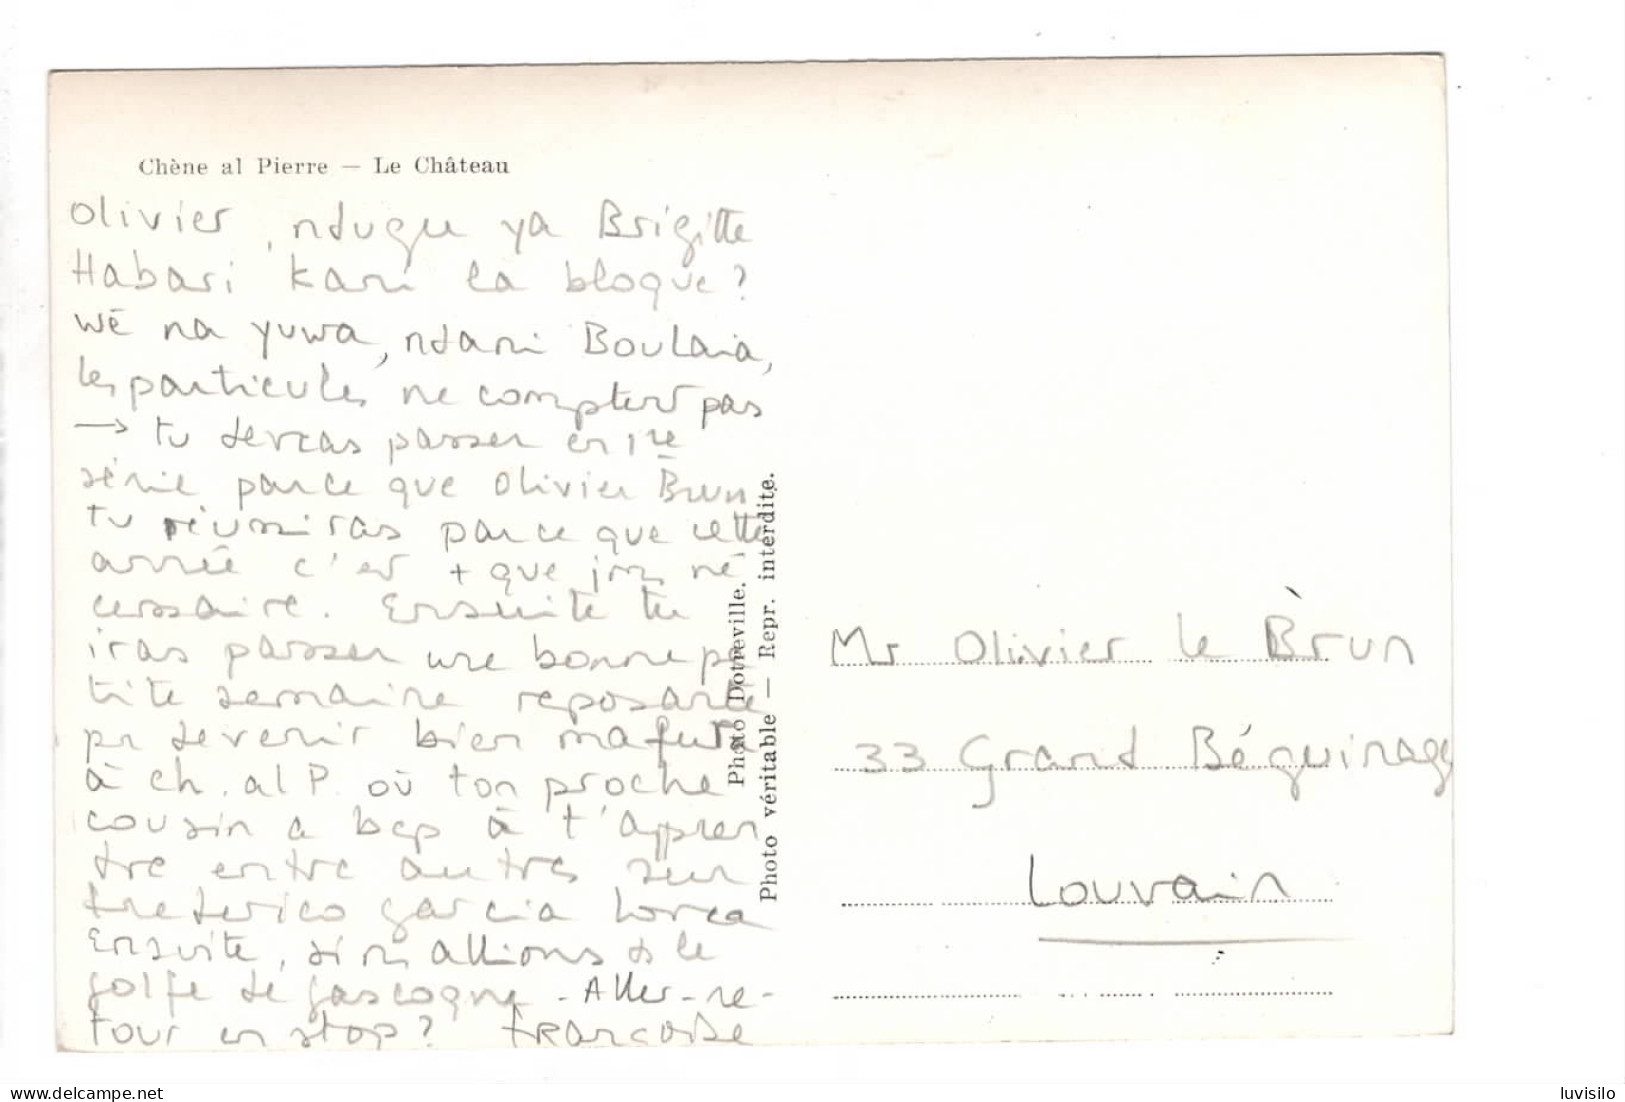 Chène al Pierre — Le Château
Olivier, ndugu ya Brigitte
Habari kani la bloque?
wē na yuwa, ndani Boulaia,
les particules ne comptent pas
→ tu devras passer en 1re
série parce que Olivier Brun
tu réussiras parce que cette
année c'est + que jms né
cessaire. Ensuite tu
iras passer une bonne pe
tite semaine reposante
pr devenir bien mafuta
à ch. al P. où ton proche
cousin a bcp à t'appren
dre entre autres sur
Frederico Garcia Lorca
Ensuite, si ns allions ds le
golfe de gascogne - Aller-re-
tour en stop? Françoise
Photo Dotreville.
Photo véritable — Repr. interdite.
Mr Olivier le Brun
33 Grand Béguinage
Louvain
delcampe.net
luvisilo